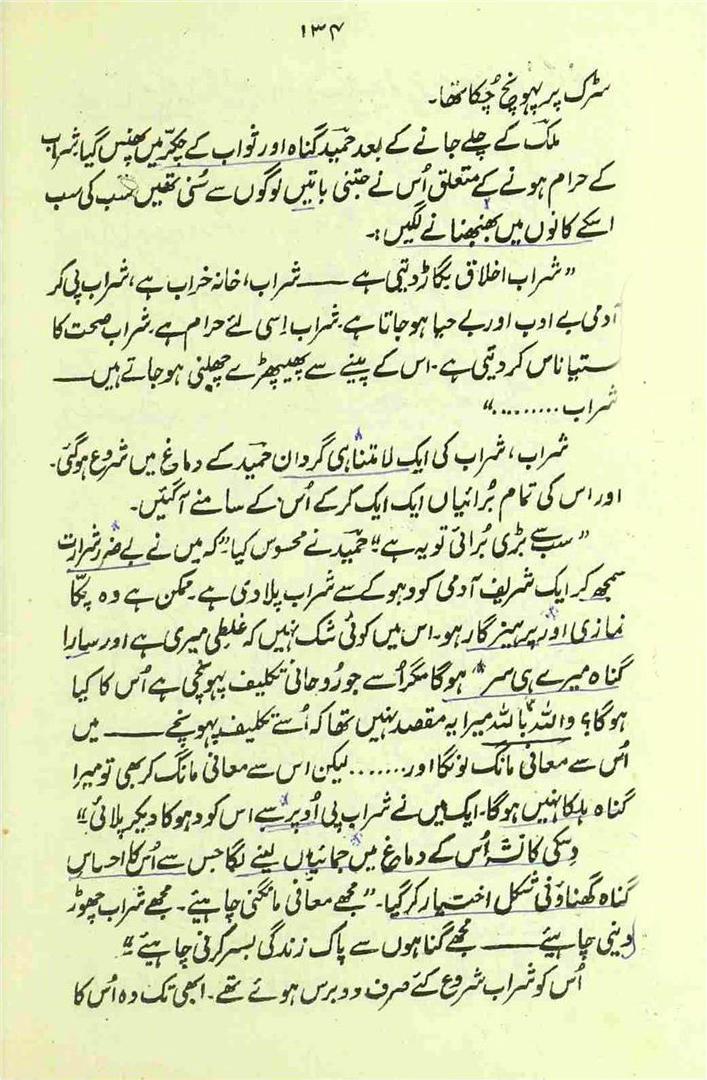 ۱۳۴
سڑک پر پہونچ چُکا تھا۔
ملک کے چلے جانے کے بعد حمید گناہ اور ثواب کے چکّر میں پھنس گیا۔ شراب
کے حرام ہونے کے متعلق اُس نے جتنی باتیں لوگوں سے سُنی تھیں سب کی سب
اسکے کانوں میں بھنبھنانے لگیں:۔
”شراب اخلاق بگاڑ دیتی ہے —— شراب، خانہ خراب ہے، شراب پی کر
آدمی بے ادب اور بے حیا ہو جاتا ہے۔ شراب اِسی لئے حرام ہے۔ شراب صحت کا
ستیاناس کر دیتی ہے۔ اس کے پینے سے پھیپھڑے چھلنی ہو جاتے ہیں ——
شراب .........“
شراب، شراب کی ایک لامتناہی گردان حمید کے دماغ میں شروع ہو گئی۔
اور اس کی تمام بُرائیاں ایک ایک کر کے اُس کے سامنے آ گئیں۔
”سب سے بڑی بُرائی تو یہ ہے“ حمید نے محسوس کیا ”کہ میں نے بے ضرر شرارت
سمجھ کر ایک شریف آدمی کو دھوکے سے شراب پلا دی ہے۔ ممکن ہے وہ پکّا
نمازی اور پرہیزگار ہو۔ اس میں کوئی شک نہیں کہ غلطی میری ہے اور سارا
گناہ میرے ہی سر ہوگا مگر اُسے جو رُوحانی تکلیف پہونچی ہے اُس کا کیا
ہوگا؟ واللہ باللہ میرا یہ مقصد نہیں تھا کہ اُسے تکلیف پہونچے —— میں
اُس سے معافی مانگ لونگا اور........ لیکن اس سے معافی مانگ کر بھی تو میرا
گناہ ہلکا نہیں ہوگا۔ ایک میں نے شراب پی اُوپر سے اس کو دھوکا دیکر پلائی“
وسکی کا نشہ اُس کے دماغ میں جمائیاں لینے لگا جس سے اُس کا احساسِ
گناہ گھناؤنی شکل اختیار کر گیا۔ ”مجھے معافی مانگنی چاہیئے۔ مجھے شراب چھوڑ
دینی چاہیئے —— مجھے گناہوں سے پاک زندگی بسر کرنی چاہیئے“
اُس کو شراب شروع کئے صرف دو برس ہوئے تھے۔ ابھی تک وہ اُس کا